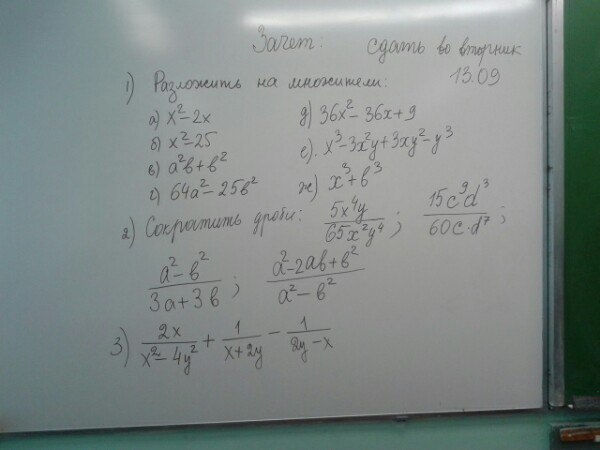 Зачет: сдать во вторник
13.09
1) Разложить на множители:
а) x²-2x
б) x²-25
в) a²b+b²
г) 64a²-25b²
д) 36x²-36x+9
е). x³-3x²y+3xy²-y³
ж) x³+b³
2) Сократить дроби: 5x⁴y/65x²y⁴ ; 15c⁹d³/60c·d⁷ ;
a²-b²/3a+3b ; a²-2ab+b²/a²-b²
3) 2x/x²-4y² + 1/x+2y - 1/2y-x